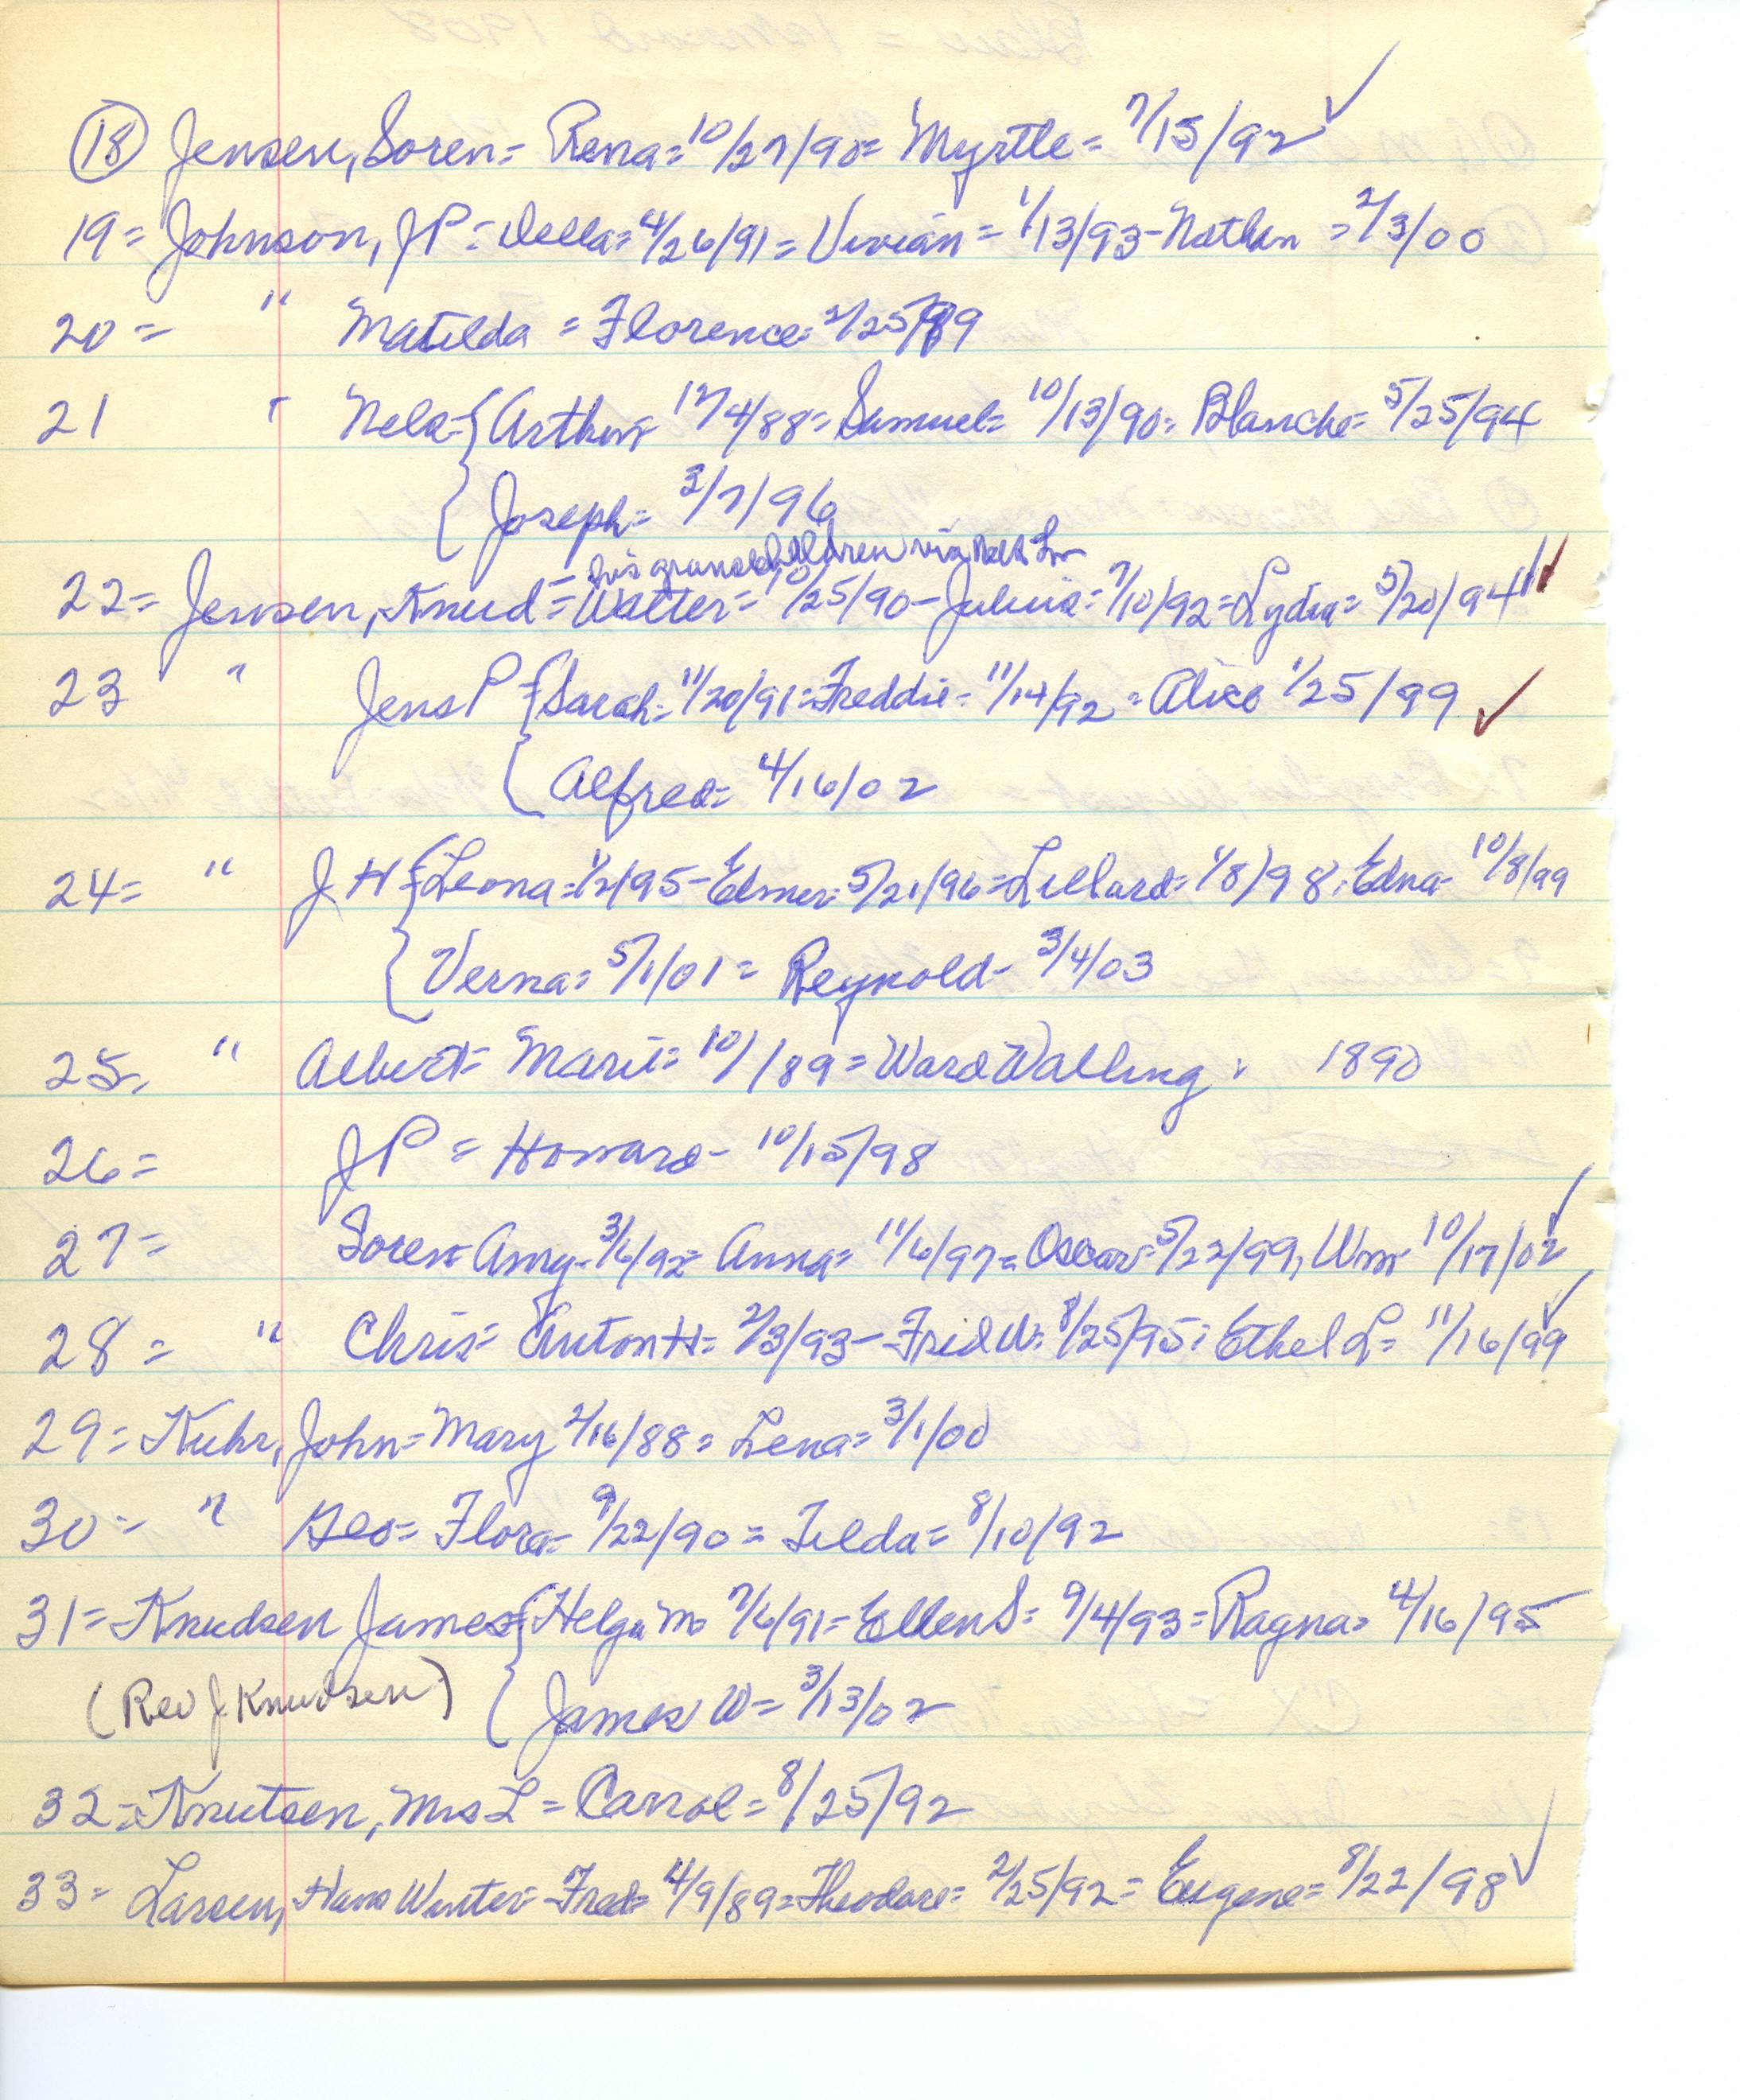 (18) Jensen, Soren= Rena= 10/27/90= Myrtle= 7/15/92 ✓
19= Johnson, JP= Della= 4/26/91= Vivian= 1/13/93-Nathan =2/3/00
20= " Matilda = Florence= 2/25/89
21 " Nels={Arthur= 12/4/88= Samuel= 10/13/90= Blanche= 5/25/94
{Joseph= 3/7/96
his grandchildren via
22= Jensen, Knud= Walter= 10/25/90- Julius= 7/10/92=Lydia= 5/20/94
23 " Jens P={Sarah= 11/20/91=Freddie- 11/14/92= Alice 1/25/99 ✓
{Alfred= 4/16/02
24= " J. H={Leona=1/2/95-Elmer= 5/21/96=Lillard= 1/8/98, Edna- 10/8/99
{Verna= 5/1/01= Reynold- 3/4/03
25, " Albert= Marie= 10/ /89=Ward Walling 1890
26= JP = Howard- 10/15/98
27= Soren= Amy- 3/6/92= Anna= 11/6/97=Oscar= 5/22/99, Wm- 10/17/02 ✓
28= " Chris= Anton H= 2/3/93- Fred W= 8/25/95: Ethel L= 11/16/99 ✓
29= Kuhr, John=Mary 2/16/88= Lena= 3/1/00
30= " Geo= Flora= 9/22/90= Tilda= 8/10/92
31= Knudsen James={Helga M= 7/6/91= Ellen S= 9/4/93=Ragna= 4/16/95
(Rev J Knudsen) {James W= 3/13/02
32=Knutsen, Mrs L= Carrol= 8/25/92
33= Larsen, Hans Winter= Fred= 4/9/89=Theodore= 2/25/92= Eugene= 8/22/98 ✓